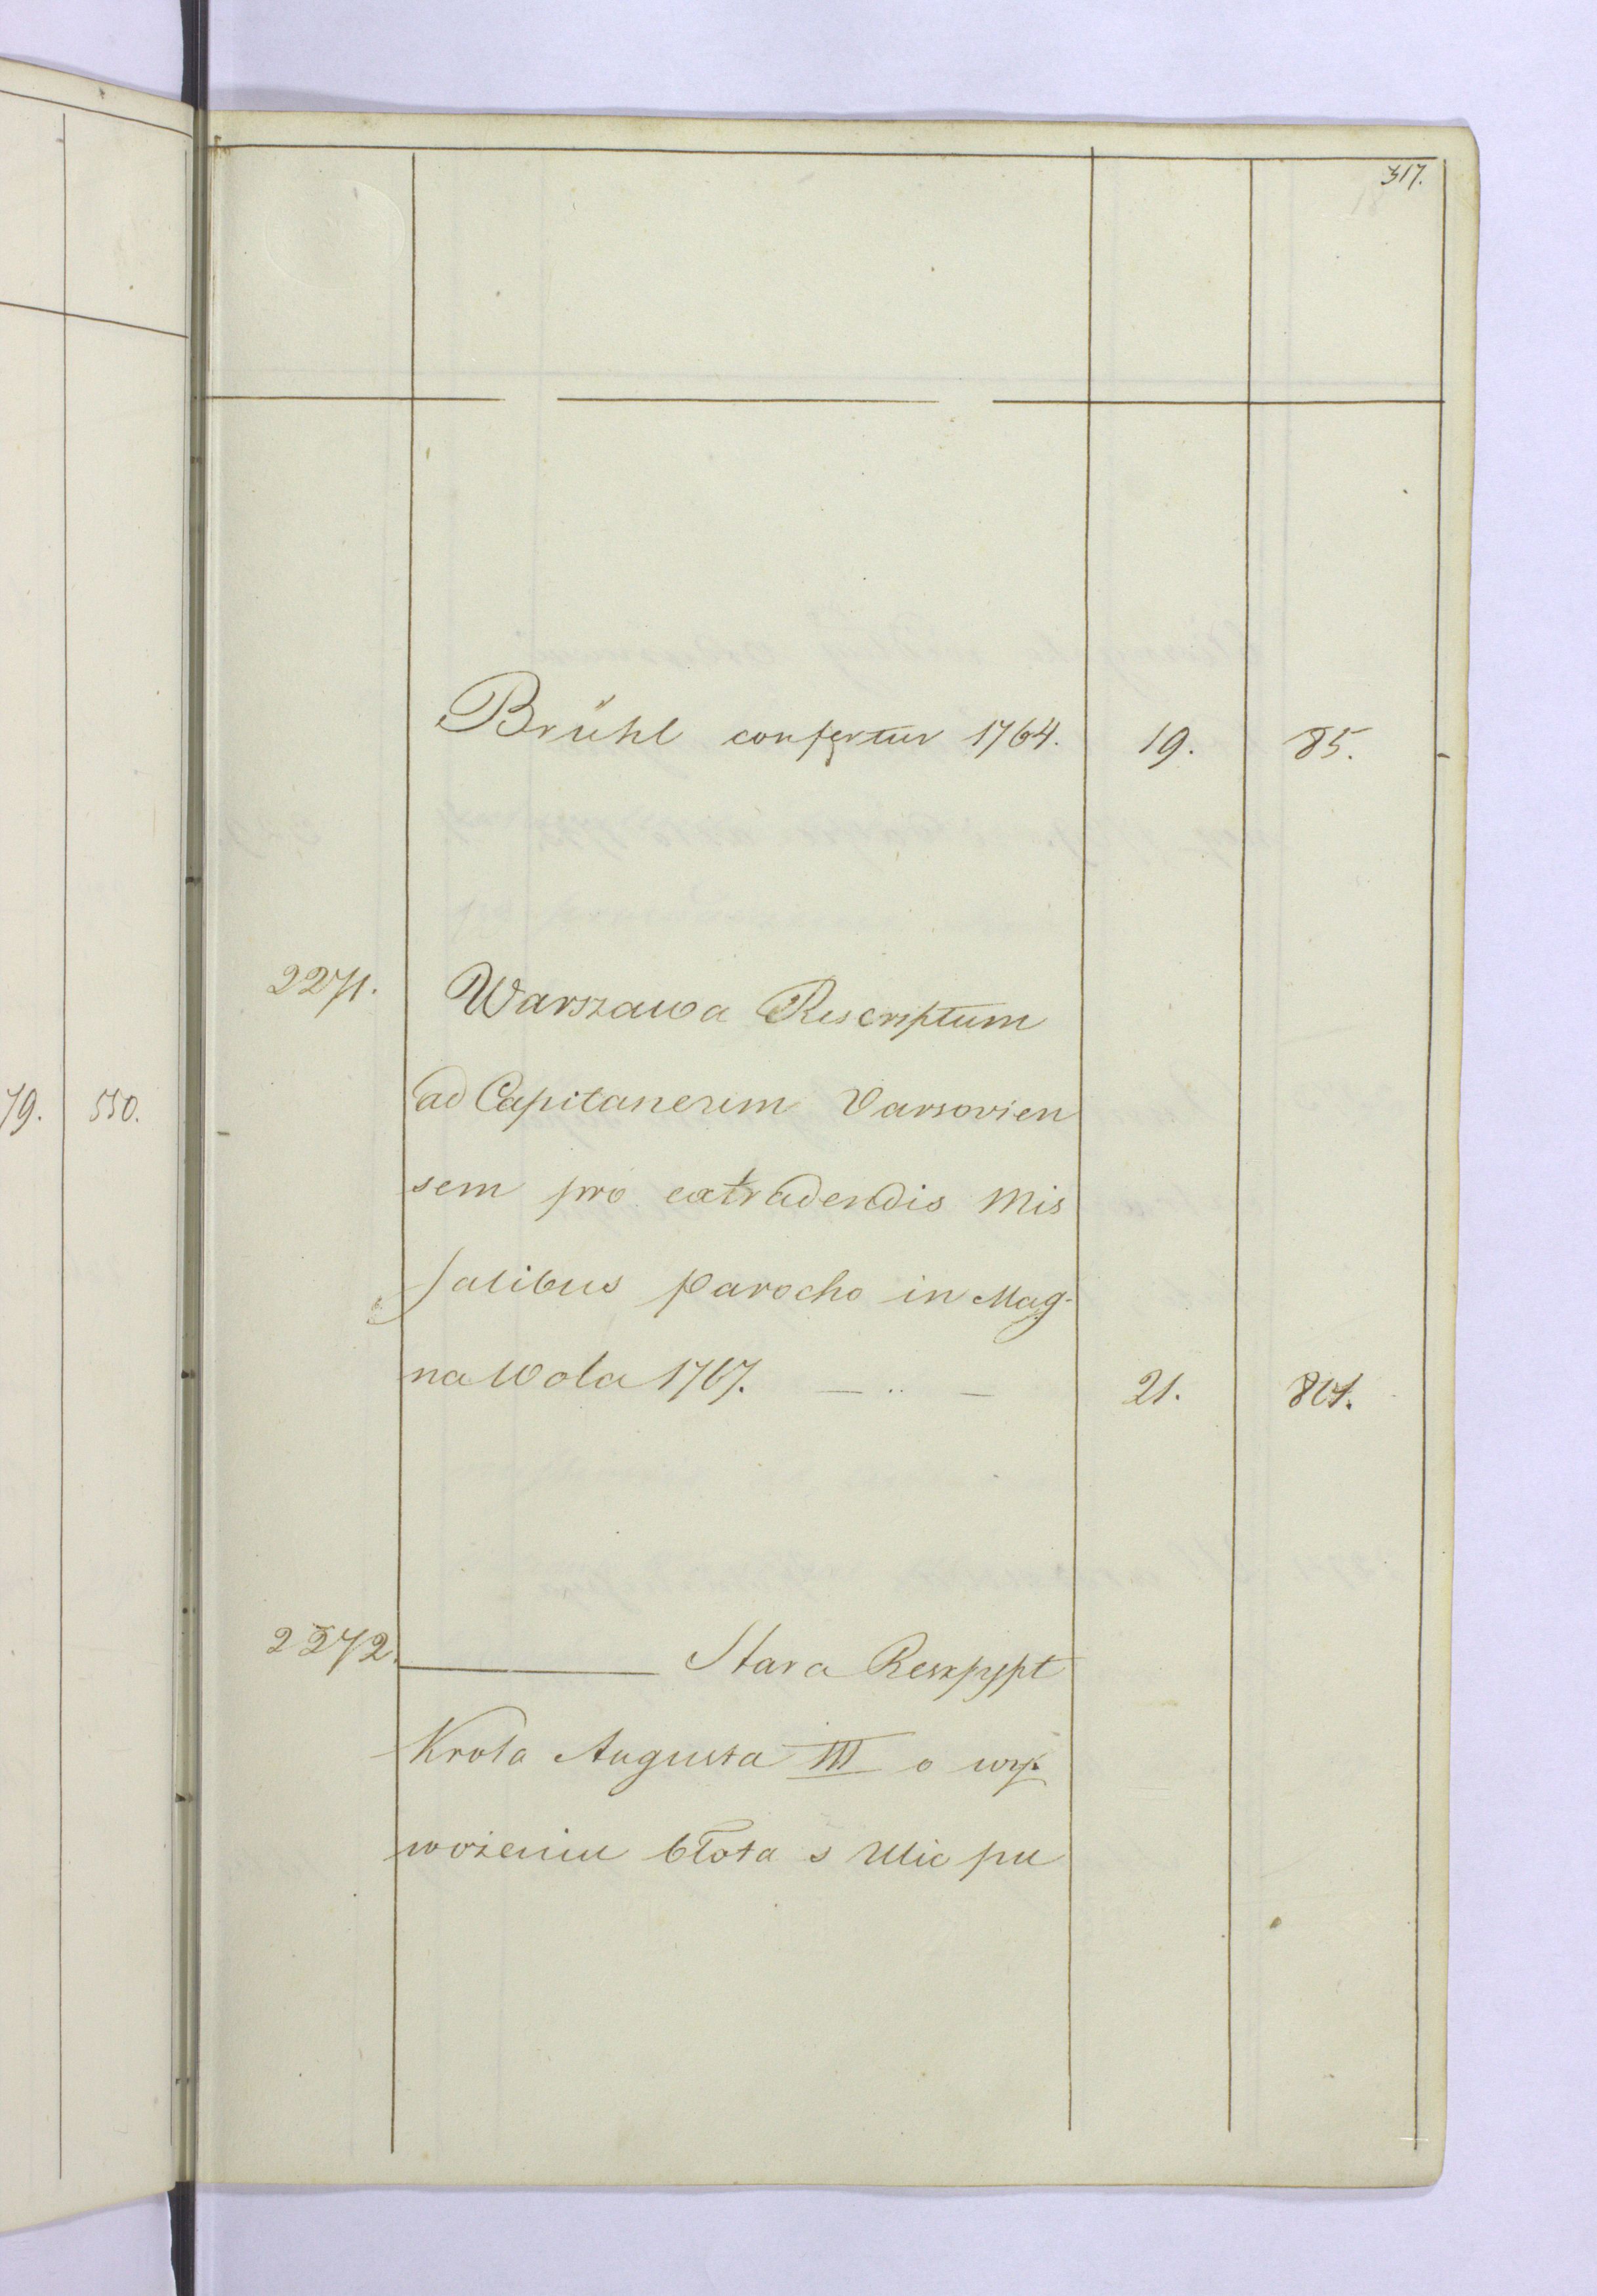 317.
Brühl confertur 1764. 19. 85.
2271. Warszawa Rescriptum
ad Capitaneum Varsovien
sem pro extradendis Mis
salibus parocho in Mag-
na Wola 1767. — .. — 21.
2272. ——— Stara Reskrypt
Krola Augusta III o wy-
wożeniu błota s Ulic pu
79. 550.